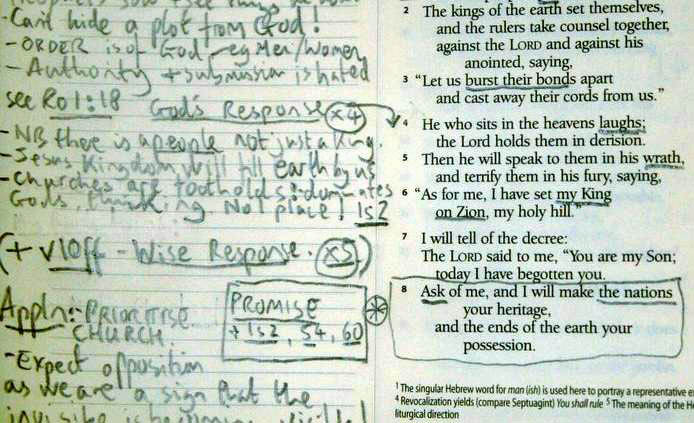 Can't hide a plot from God!
- ORDER is of God - eg Men/Women
- Authority + submission is hated
see Ro 1:18 God's Response (x4)
- NB there is a people not just a King.
- Jesus Kingdom will fill earth by us
- Churches are footholds:
God's thinking. No 1 place! Is 2
(+ v10ff - Wise Response. (x5))
Appln:- PRIORITISE
CHURCH.
PROMISE
+ Is 2, 54, 60
- Expect opposition
as we are a sign that the
2 The kings of the earth set themselves,
and the rulers take counsel together,
against the LORD and against his
anointed, saying,
3 “Let us burst their bonds apart
and cast away their cords from us.”
4 He who sits in the heavens laughs;
the Lord holds them in derision.
5 Then he will speak to them in his wrath,
and terrify them in his fury, saying,
6 “As for me, I have set my King
on Zion, my holy hill.”
7 I will tell of the decree:
The LORD said to me, “You are my Son;
today I have begotten you.
8 Ask of me, and I will make the nations
your heritage,
and the ends of the earth your
possession.
1 The singular Hebrew word for man (ish) is used here to portray a representative
4 Revocalization yields (compare Septuagint) You shall rule 5 The meaning of the
liturgical direction